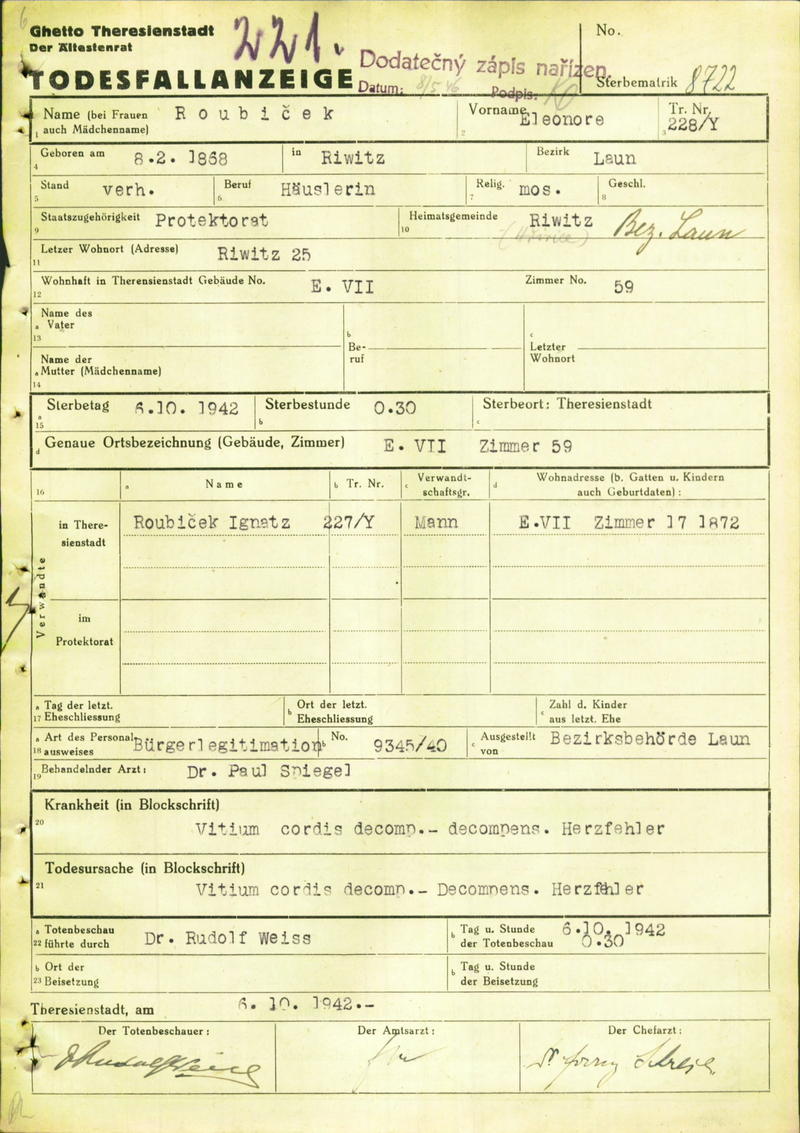 Ghetto Theresienstadt
Der Ältestenrat
221.
Dodatečný zápis nařízen.
Datum: 8/5 46 Podpis:
No.
TODESFALLANZEIGE
Sterbematrik 8722
Name (bei Frauen auch Mädchenname) Roubíček
1
Vorname Eleonore
2
Tr. Nr. 228/Y
3
Geboren am 8.2. 1868 in Riwitz Bezirk Laun
4
Stand verh. Beruf Häuslerin Relig. mos. Geschl.
5 6 7 8
Staatszugehörigkeit Protektorat Heimatsgemeinde Riwitz Bez. Laun
9 10
Letzer Wohnort (Adresse) Riwitz 25
11
Wohnhaft in Therensienstadt Gebäude No. E. VII Zimmer No. 59
12
Name des
a Vater
13
b Be-
ruf
c Letzter
Wohnort
Name der
a Mutter (Mädchenname)
14
Sterbetag 6.10. 1942 Sterbestunde 0.30 Sterbeort: Theresienstadt
a 15 b c
d Genaue Ortsbezeichnung (Gebäude, Zimmer) E. VII Zimmer 59
16 a Name b Tr. Nr. c Verwandt-
schaftsgr. d Wohnadresse (b. Gatten u. Kindern
auch Geburtdaten) :
Verwandte
in There-
sienstadt
Roubíček Ignatz 227/Y Mann E.VII Zimmer 17 1872
im
Protektorat
a Tag der letzt.
17 Eheschliessung
b Ort der letzt.
Eheschliessung
c Zahl d. Kinder
aus letzt. Ehe
a Art des Personal-
18 ausweises Bürgerlegitimation b No. 9345/40 c Ausgestellt
von Bezirksbehörde Laun
19 Behandelnder Arzt: Dr. Paul Spiegel
Krankheit (in Blockschrift)
20
Vitium cordis decomp.- decompens. Herzfehler
Todesursache (in Blockschrift)
21
Vitium cordis decomp.- Decompens. Herzfehler
a Totenbeschau
22 führte durch Dr. Rudolf Weiss b Tag u. Stunde
der Totenbeschau 6.10. 1942
0.30
b Ort der
23 Beisetzung
b Tag u. Stunde
der Beisetzung
Theresienstadt, am 6. 10. 1942.-
Der Totenbeschauer: Der Amtsarzt: Der Chefarzt: